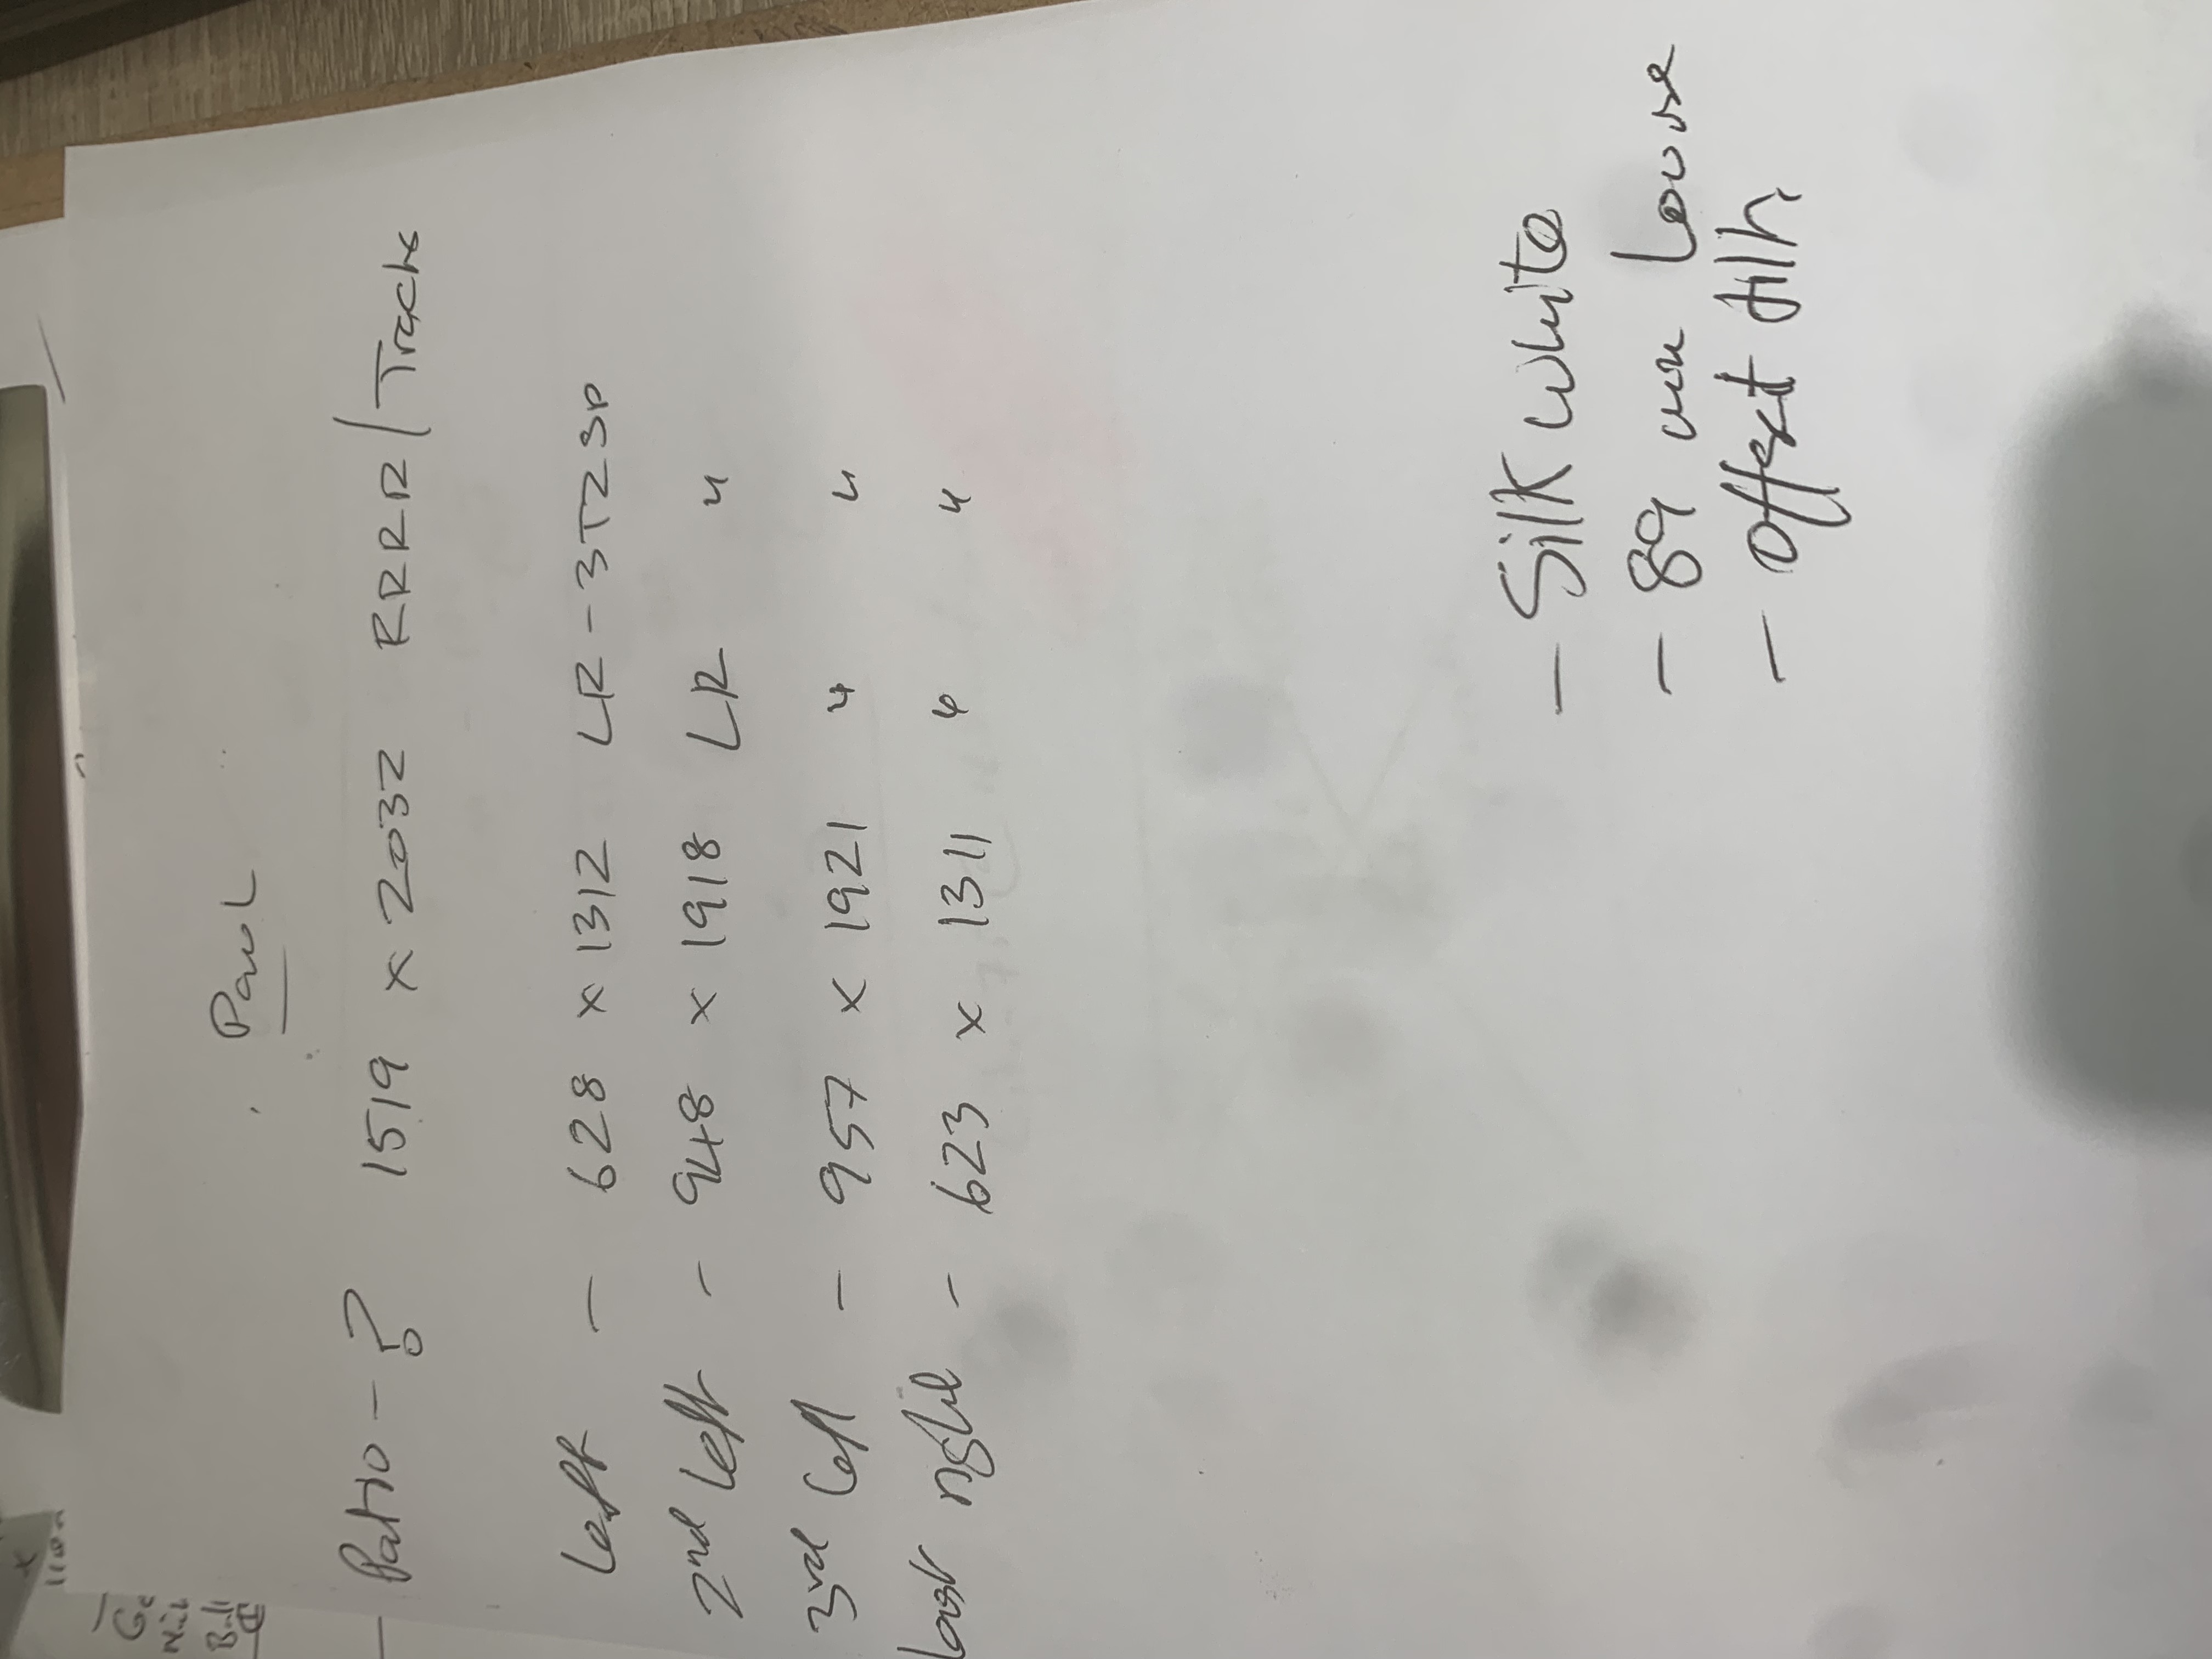 Paul
- Patio - ? 1519 x 2032 RRRR / Track
Left - 628 x 1312 LR - 3TZSP
2nd Left - 948 x 1918 LR "
3rd Left - 957 x 1921 " "
Last right - 623 x 1311 " "
- Silk white
- 89 mm Louvre
- Offset tilt